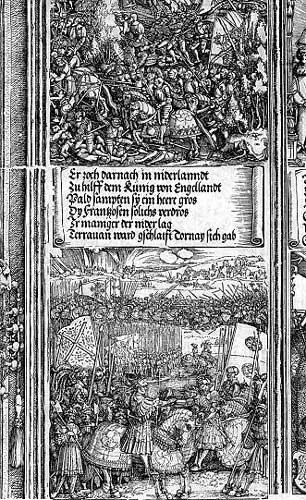 Er zoch darnach in niderlanndt
Zu hilff dem Künig von Engellandt
Pald sampten sy ein heer gros
Dy Frantzosen solichs verdros
Ir maniger der nider lag
Terrauan ward gschlaift Dornay sich gab